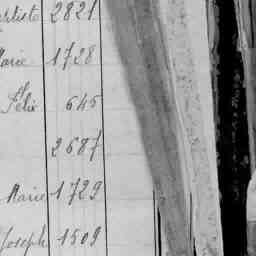 artiste 2821
Marie 1728
Félix 645
2687
Marie 1729
Joseph 1509